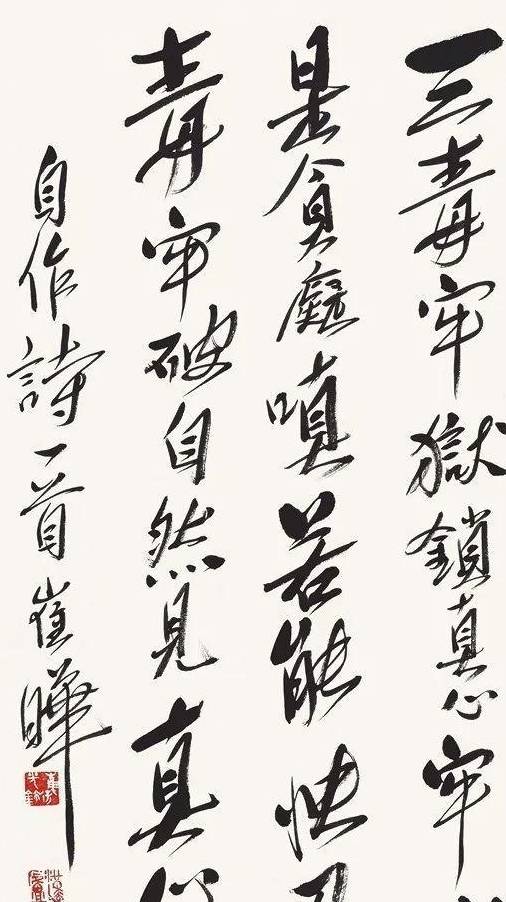 三毒牢獄鎖真心牢
是貪癡嗔若能快
毒牢破自然見真
自作詩一首崔曄